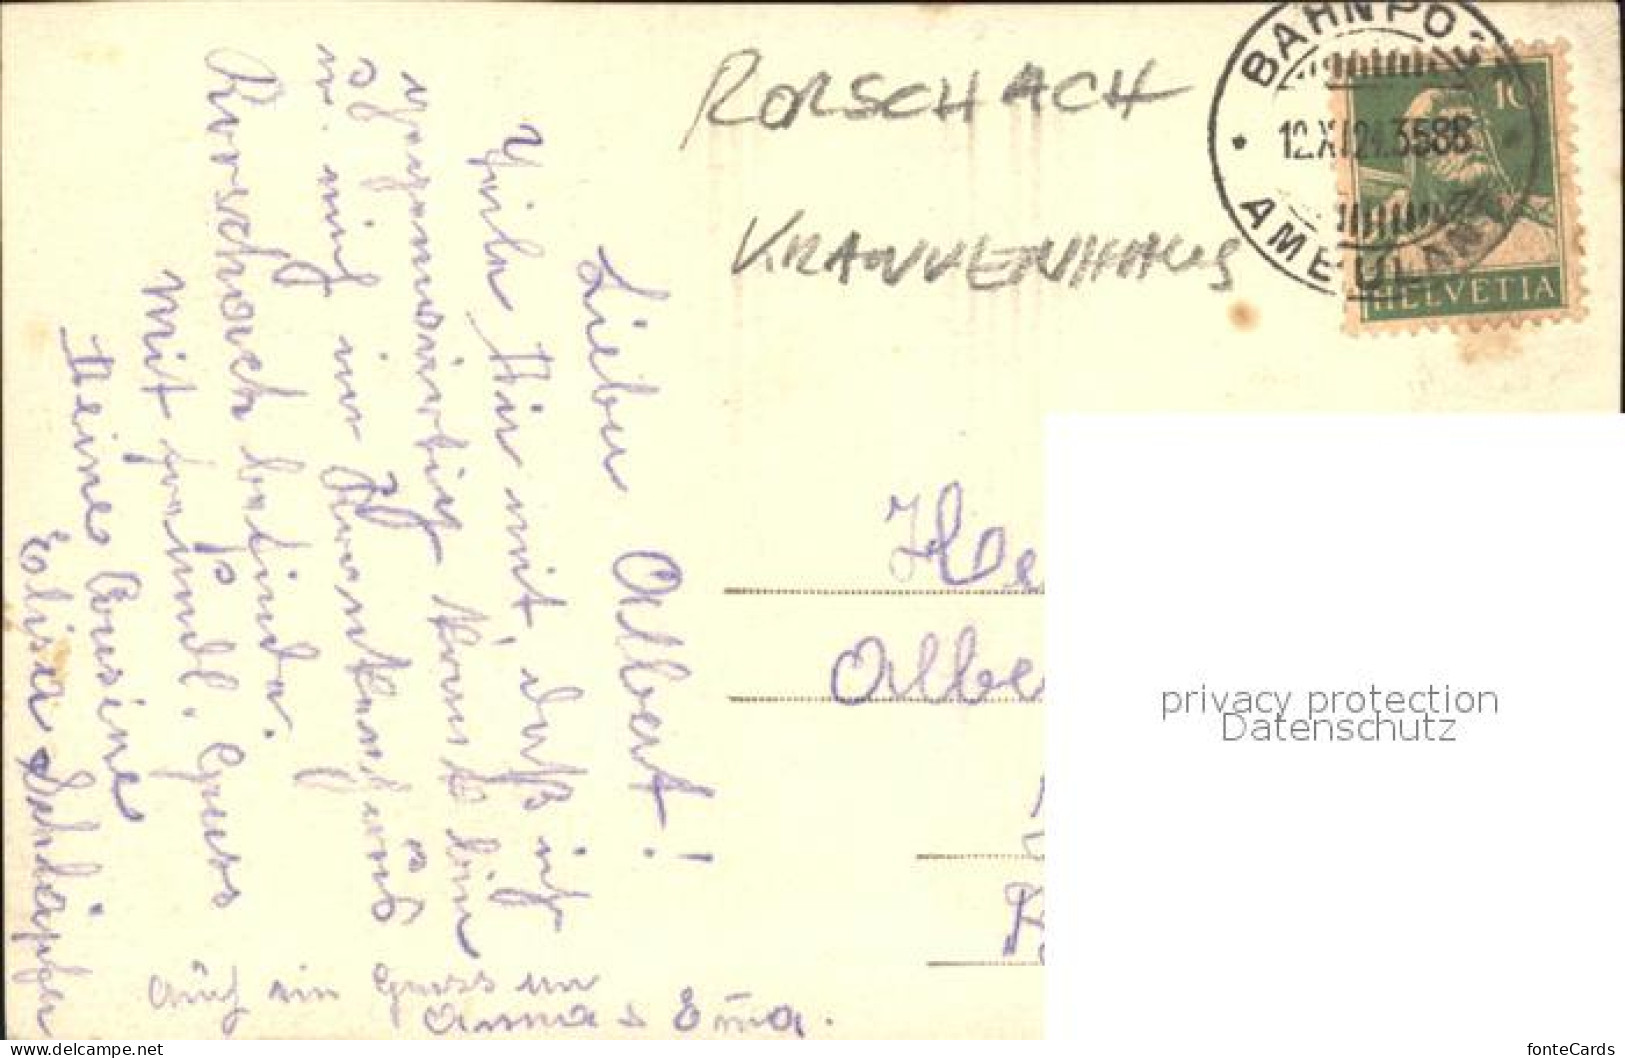 RORSCHACH
KRANKENHAUS
BAHNPOS
12.XI.24.3586
AMBULANT
10
HELVETIA
Lieber Albert!
Teile Dir mit, daß ich
gegenwärtig krank bin
u. mich im Krankenhaus
Rorschach befinde.
mit freundl. Gruss
Deine Cousine
Elisa
Auch ein Gruss an
Anna & Ema.
He
Albe
privacy protection
Datenschutz
www.delcampe.net
fonteCards